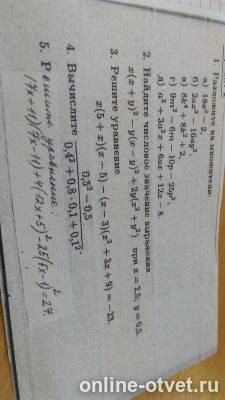 1. Разложите на множители:
а) 18a² − 2,
б) 2ax³ − 16ay³,
в) 8k⁴ + 8k² + 2,
г) 9m² − 6m + 10p − 25p²,
д) a³ + 3a²x + 6ax + 12x − 8.
2. Найдите числовое значение выражения
x(x + y)² − y(x − y)² + 2y(x² + y²) при x = 2,5, y = 0,5.
3. Решите уравнение
x(5 + x)(x − 5) − (x − 3)(x² + 3x + 9) = −23.
4. Вычислите
0,5³ − 0,5
0,4² + 0,8 · 0,1 + 0,1²
5. Решите уравнение:
(7x+11)(7x−11)+4(12x+5)²−25(5x−1)²=27.
online-otvet.ru